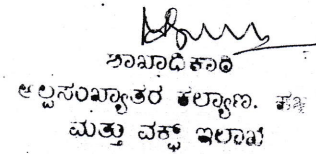 ಶಾಖಾಧಿಕಾರಿ
ಅಲ್ಪಸಂಖ್ಯಾತರ ಕಲ್ಯಾಣ. ಹಜ್
ಮತ್ತು ವಕ್ಫ್ ಇಲಾಖೆ